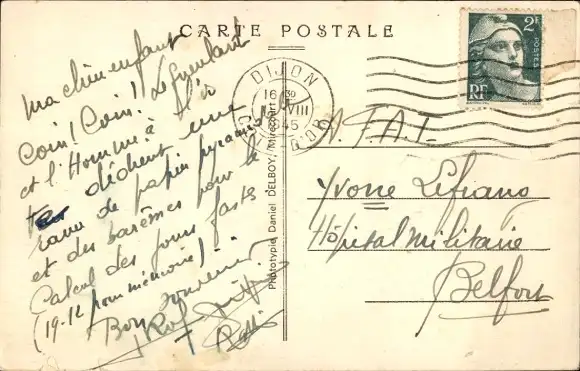 CARTE POSTALE
Ma chère enfant
Coin! Coin! Le
et l'Homme à
dédient une
rame de papier pyramis
et des barèmes pour le
Calcul des jours fastes
(19-12 pour mémoire)
Bon souvenir
Phototypie Daniel DELBOY, Mirecourt
DIJON
16 30
VIII
1945
CÔTE-D'OR
2F
POSTES
RF
A.F.A.T.
Yvonne Lefranc
Hôpital militaire
Belfort